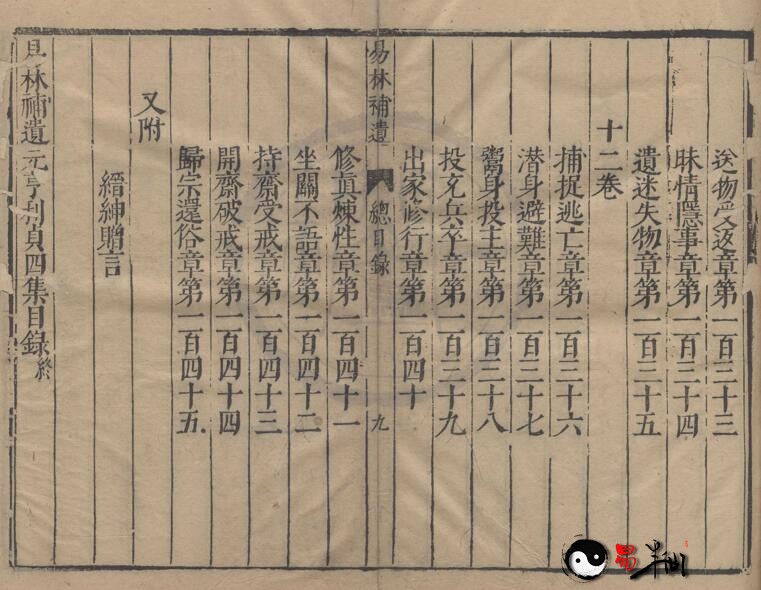 送物受返章第一百三十三
昧情隱事章第一百三十四
遺迷失物章第一百三十五
十二卷
捕捉逃亡章第一百三十六
潛身避難章第一百三十七
鬻身投主章第一百三十八
投充兵卒章第一百三十九
出家修行章第一百四十
易林補遺
總目錄
九
修真煉性章第一百四十一
坐關不語章第一百四十二
持齋受戒章第一百四十三
開齋破戒章第一百四十四
歸宗還俗章第一百四十五
又附
縉紳贈言
易林補遺元亨利貞四集目錄終